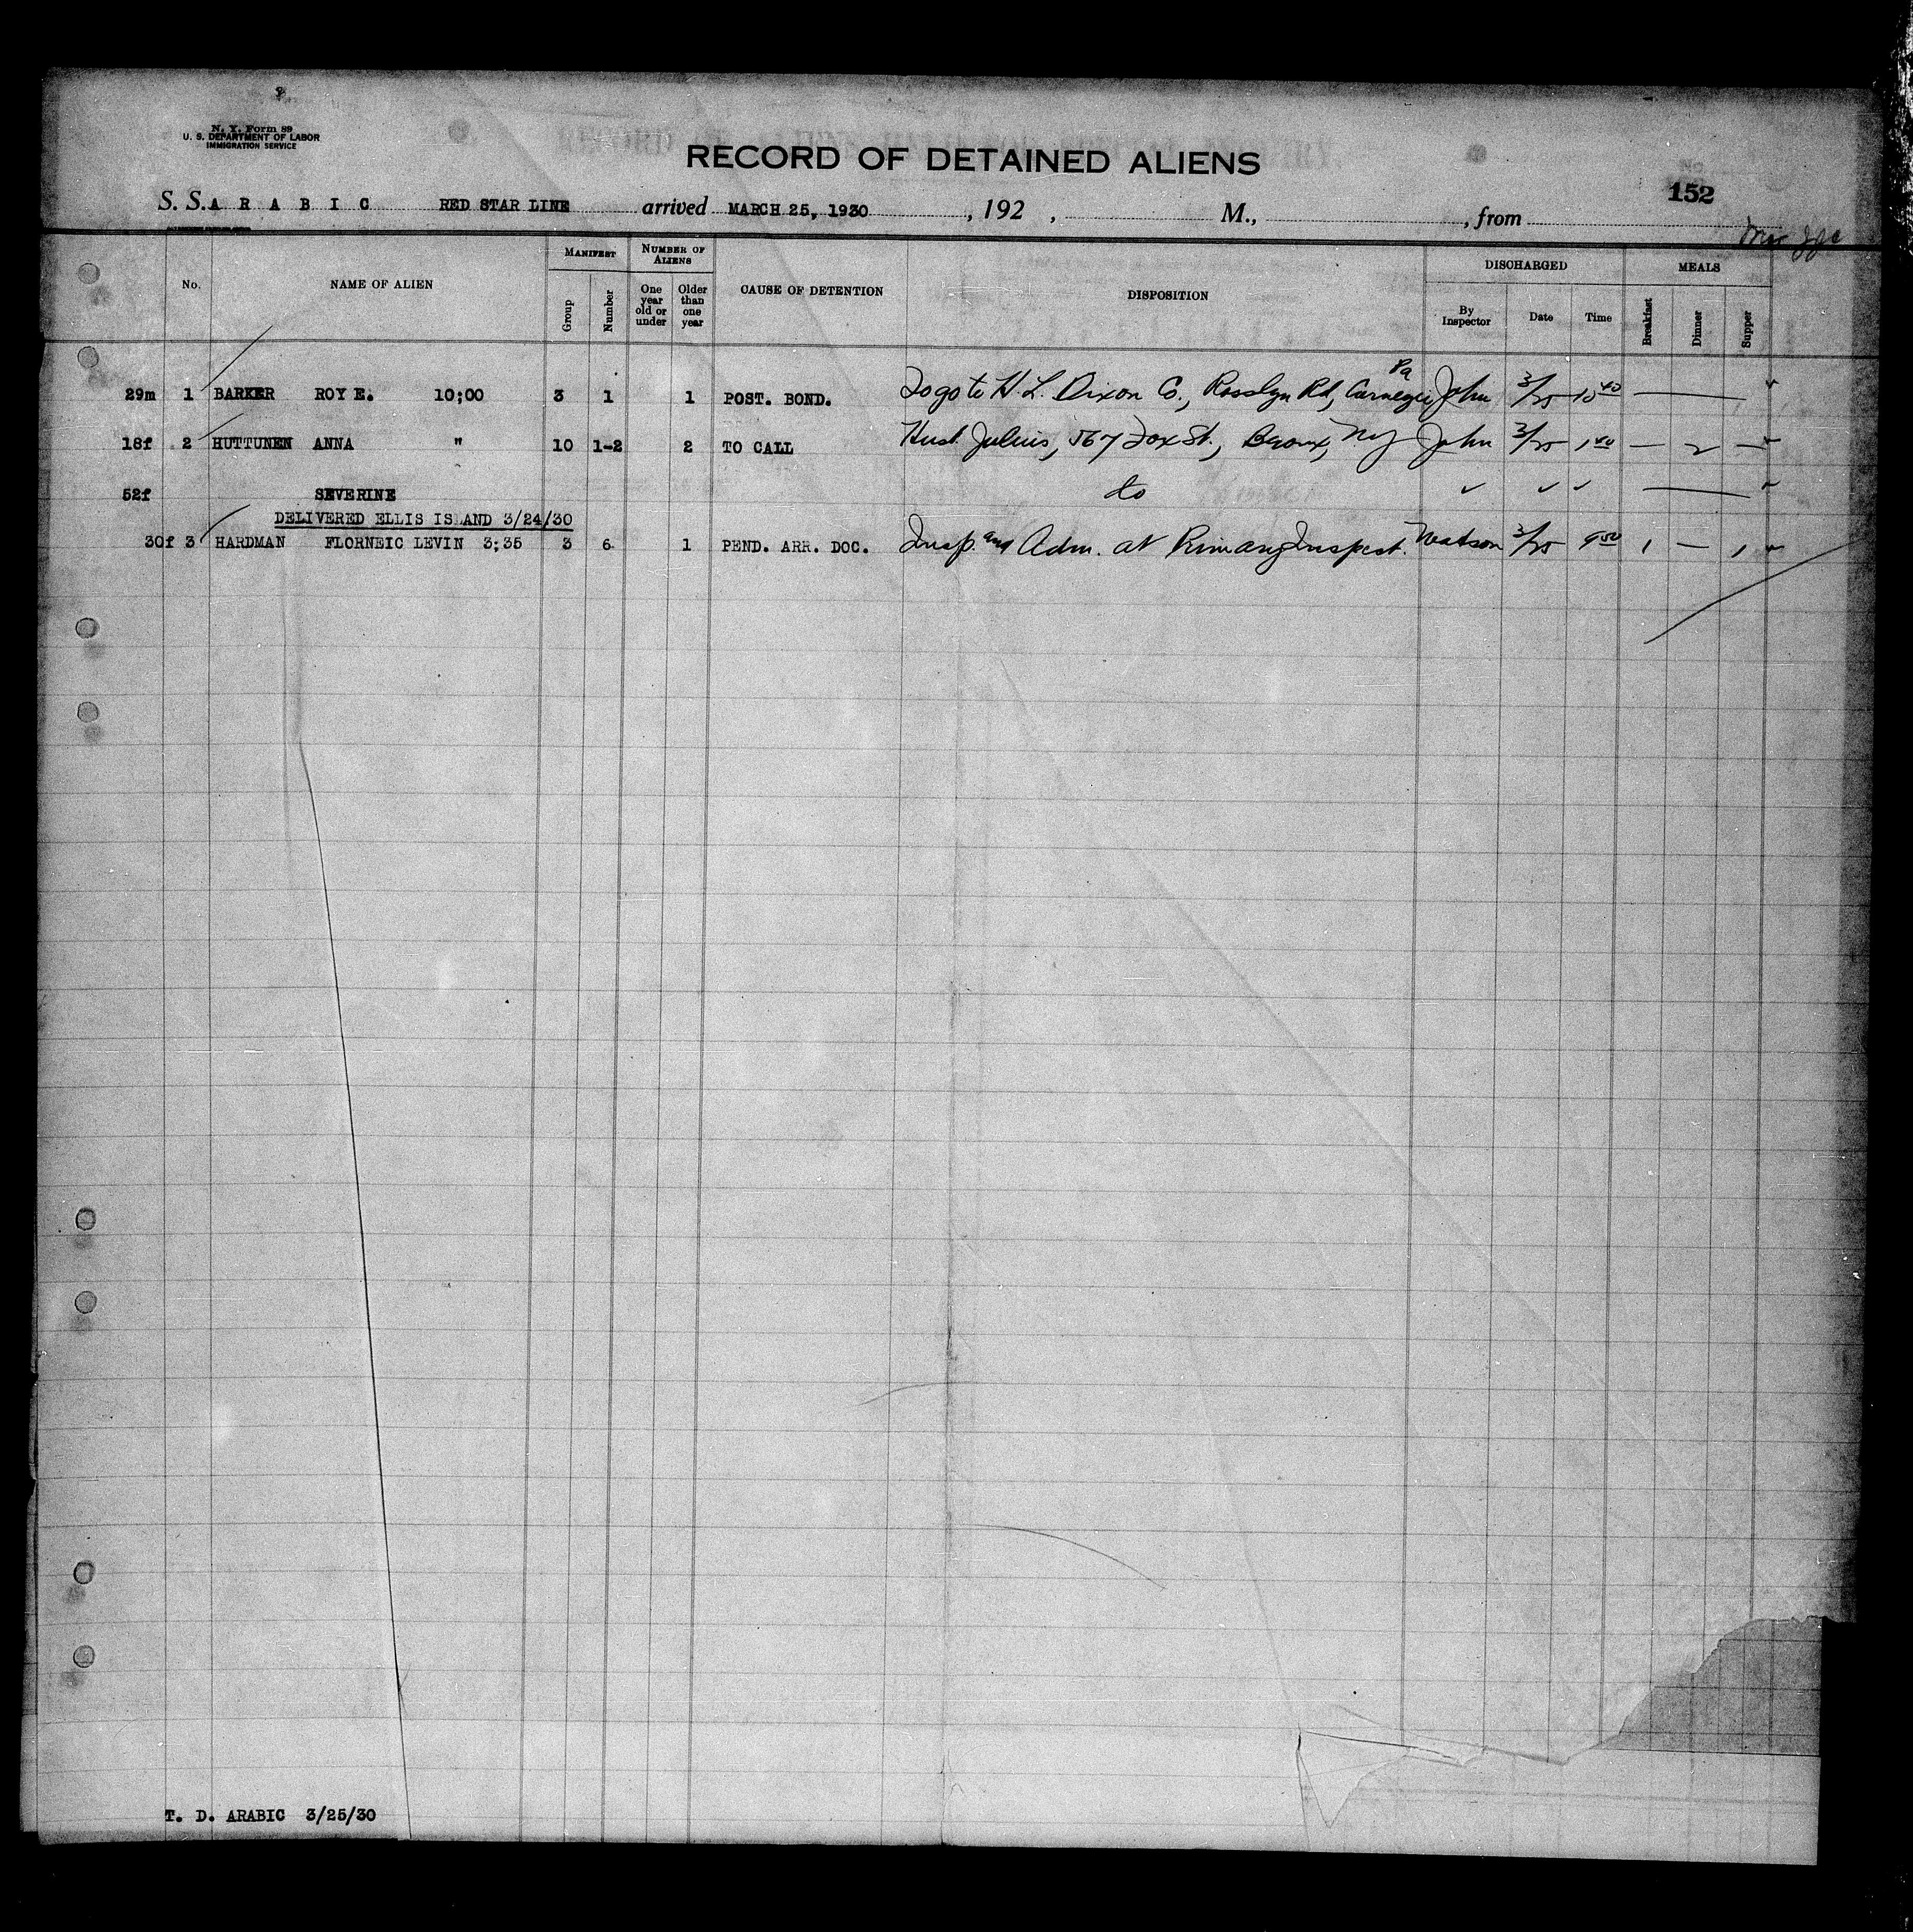 N. Y. Form 89
U. S. DEPARTMENT OF LABOR
IMMIGRATION SERVICE
RECORD OF DETAINED ALIENS
152
S. S. A R A B I C RED STAR LINE arrived MARCH 25, 1930, 192 , M., , from
No. NAME OF ALIEN MANIFEST Group Number NUMBER OF ALIENS One year old or under Older than one year CAUSE OF DETENTION DISPOSITION DISCHARGED By Inspector Date Time MEALS Breakfast Dinner Supper
29m 1 BARKER ROY E. 10;00 3 1 1 POST. BOND. To go to H. L. Dixon Co., Rosslyn Rd, Carnegie Pa John 3/25 10 40 —
18f 2 HUTTUNEN ANNA " 10 1-2 2 TO CALL Husb. Julius, 567 Fox St., Bronx, NY John 3/25 1 40 — 2 —
52f SEVERINE do ✓ ✓ ✓ —
DELIVERED ELLIS ISLAND 3/24/30
30f 3 HARDMAN FLORNEIC LEVIN 3;35 3 6 1 PEND. ARR. DOC. Insp. and Adm. at Primary Inspect. Watson 3/25 9 50 1 — 1
T. D. ARABIC 3/25/30